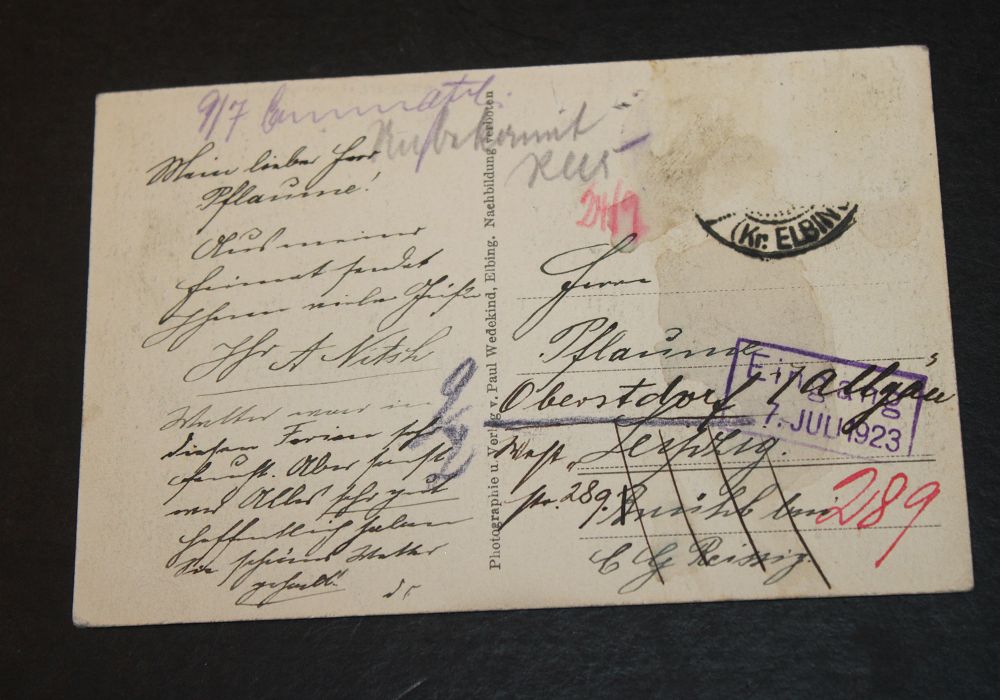 9/7
Unbekannt
24/7
Mein lieber Herr
Pflaume!
Aus meiner
Heimat sendet
Ihnen viele Grüße
Ihr A Nitsch
Wetter war in
diesen Ferien
Aber sonst
war Alles sehr gut
hoffentlich haben
Sie schönes Wetter
gehabt!
Photographie u. Verlag v. Paul Wedekind, Elbing. Nachbildung verboten
(Kr. ELBIN
Herrn
Pflaume
Oberstdorf / Allgäu
Eingang
7. JULI 1923
Leipzig.
West
str. 289.
289
C G Reissig